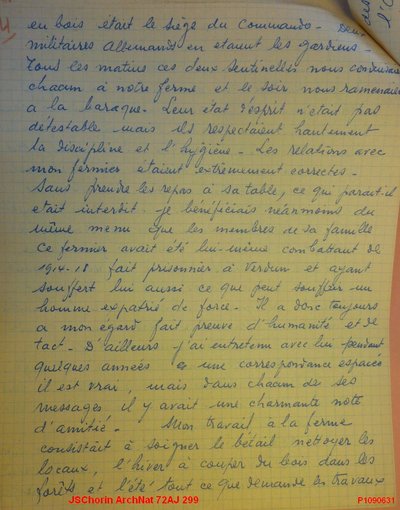 en bois était le siège du Commando - Deux
militaires Allemands en étaient les gardiens -
Tous les matins ces deux sentinelles nous conduisaient
chacun à notre ferme et le soir nous ramenaient
a la baraque - Leur état d'esprit n'était pas
détestable mais ils respectaient hautement
la discipline et l'hygiène - Les relations avec
mon fermier étaient extrêmement correctes -
Sans prendre les repas à sa table, ce qui parait-il
était interdit je bénéficiais néanmoins du
même menu que les membres de sa famille
Ce fermier avait été lui-même combattant de
1914-18 fait prisonnier à Verdun et ayant
souffert lui aussi ce que peut souffrir un
homme expatrié de force - Il a donc toujours
a mon égard fait preuve d'humanité et de
tact - D'ailleurs j'ai entretenu avec lui pendant
quelques années une correspondance espacée
il est vrai, mais dans chacun de ses
messages il y avait une charmante note
d'amitié - Mon travail à la ferme
consistait à soigner le bétail nettoyer les
locaux, l'hiver a couper du bois dans les
forêts et l'été tout ce que demande les travaux
JSChorin ArchNat 72AJ 299
P1090631